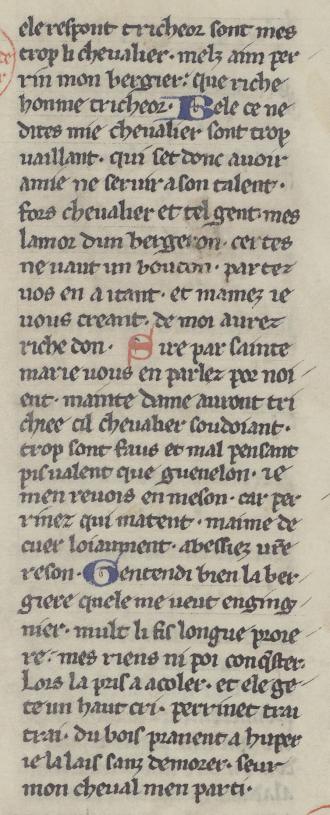 ele respont tricheor sont mes
trop li chevalier· melz aim per
rin mon bergier· que riche
homme tricheor· Bele ce ne
dites mie chevalier sont trop
vaillant· qui set donc avoir
amie ne servir a son talent·
fors chevalier et tel gent· mes
lamor dun bergeron· certes
ne vaut un bouton· partez
vos en a itant· et mamez ie
vous creant· de moi aurez
riche don· Sire par sainte
marie vous en parlez por noi
ent· mainte dame auront tri
chiee cil chevalier soudoiant·
trop sont faus et mal pensant
pis valent que guenelon· ie
men revois en meson· car per
rinez qui matent· maime de
cuer loiaument· abessiez vr̃e
reson· Gentendi bien la ber
giere quele me veut enging
nier· mult li fis longue proie
re· mes riens ni poi conq̃ster·
Lors la pris a acoler· et ele ge
te un haut cri· perrinet trai
trai· du bois pranent a huper
ie la lais sanz demorer· seur
mon cheval men parti·